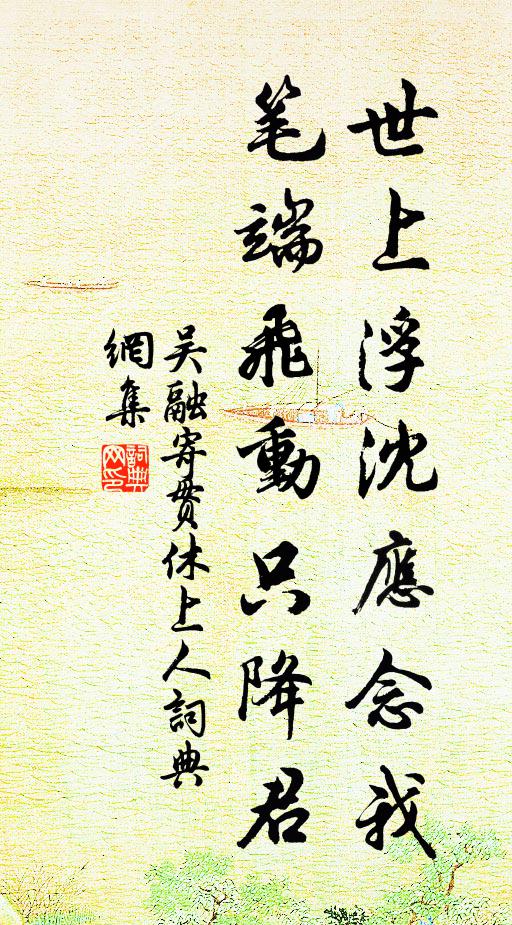 世上浮沈應念我
笔端飛動只降君
吳融寄貫休上人詞典
網集
詞典
网印